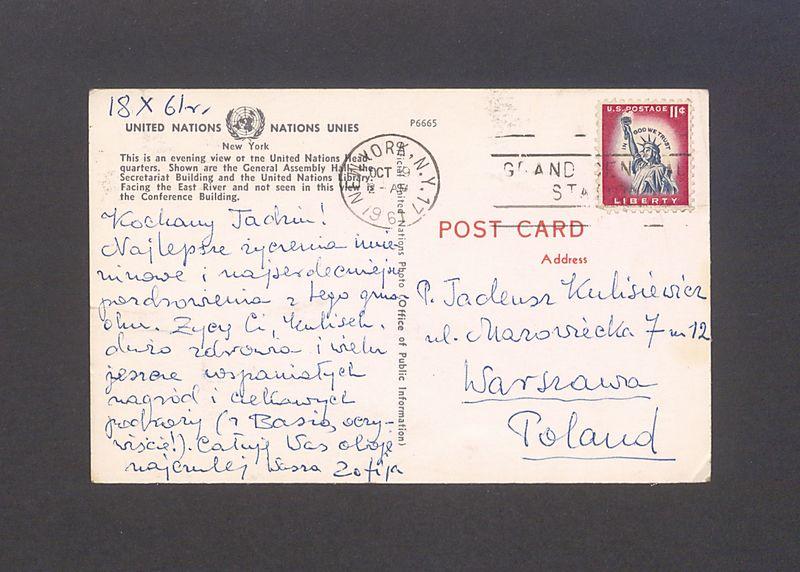 18 X 61 r.
UNITED NATIONS NATIONS UNIES
P6665
New York
This is an evening view of the United Nations Head
quarters. Shown are the General Assembly Hall, the
Secretariat Building and the United Nations Library.
Facing the East River and not seen in this view is
the Conference Building.
Kochany Tadziu!
Najlepsze życzenia imie-
ninowe i najserdeczniejsze
pozdrowienia z tego gma-
chu. Życzę Ci, Kulisiu,
dużo zdrowia i wielu
jeszcze wspaniałych
nagród i ciekawych
podróży (z Basią, oczy-
wiście!). Całuję Was oboje
najczulej Wasza Zofija
Official United Nations Photo (Office of Public Information)
NEW YORK, N.Y. 17
OCT 19
1961
GRAND CENTRAL
STA
U.S. POSTAGE 11¢
IN GOD WE TRUST
LIBERTY
POST CARD
Address
P. Tadeusz Kulisiewicz
ul. Mazowiecka 7 m 12
Warszawa
Poland